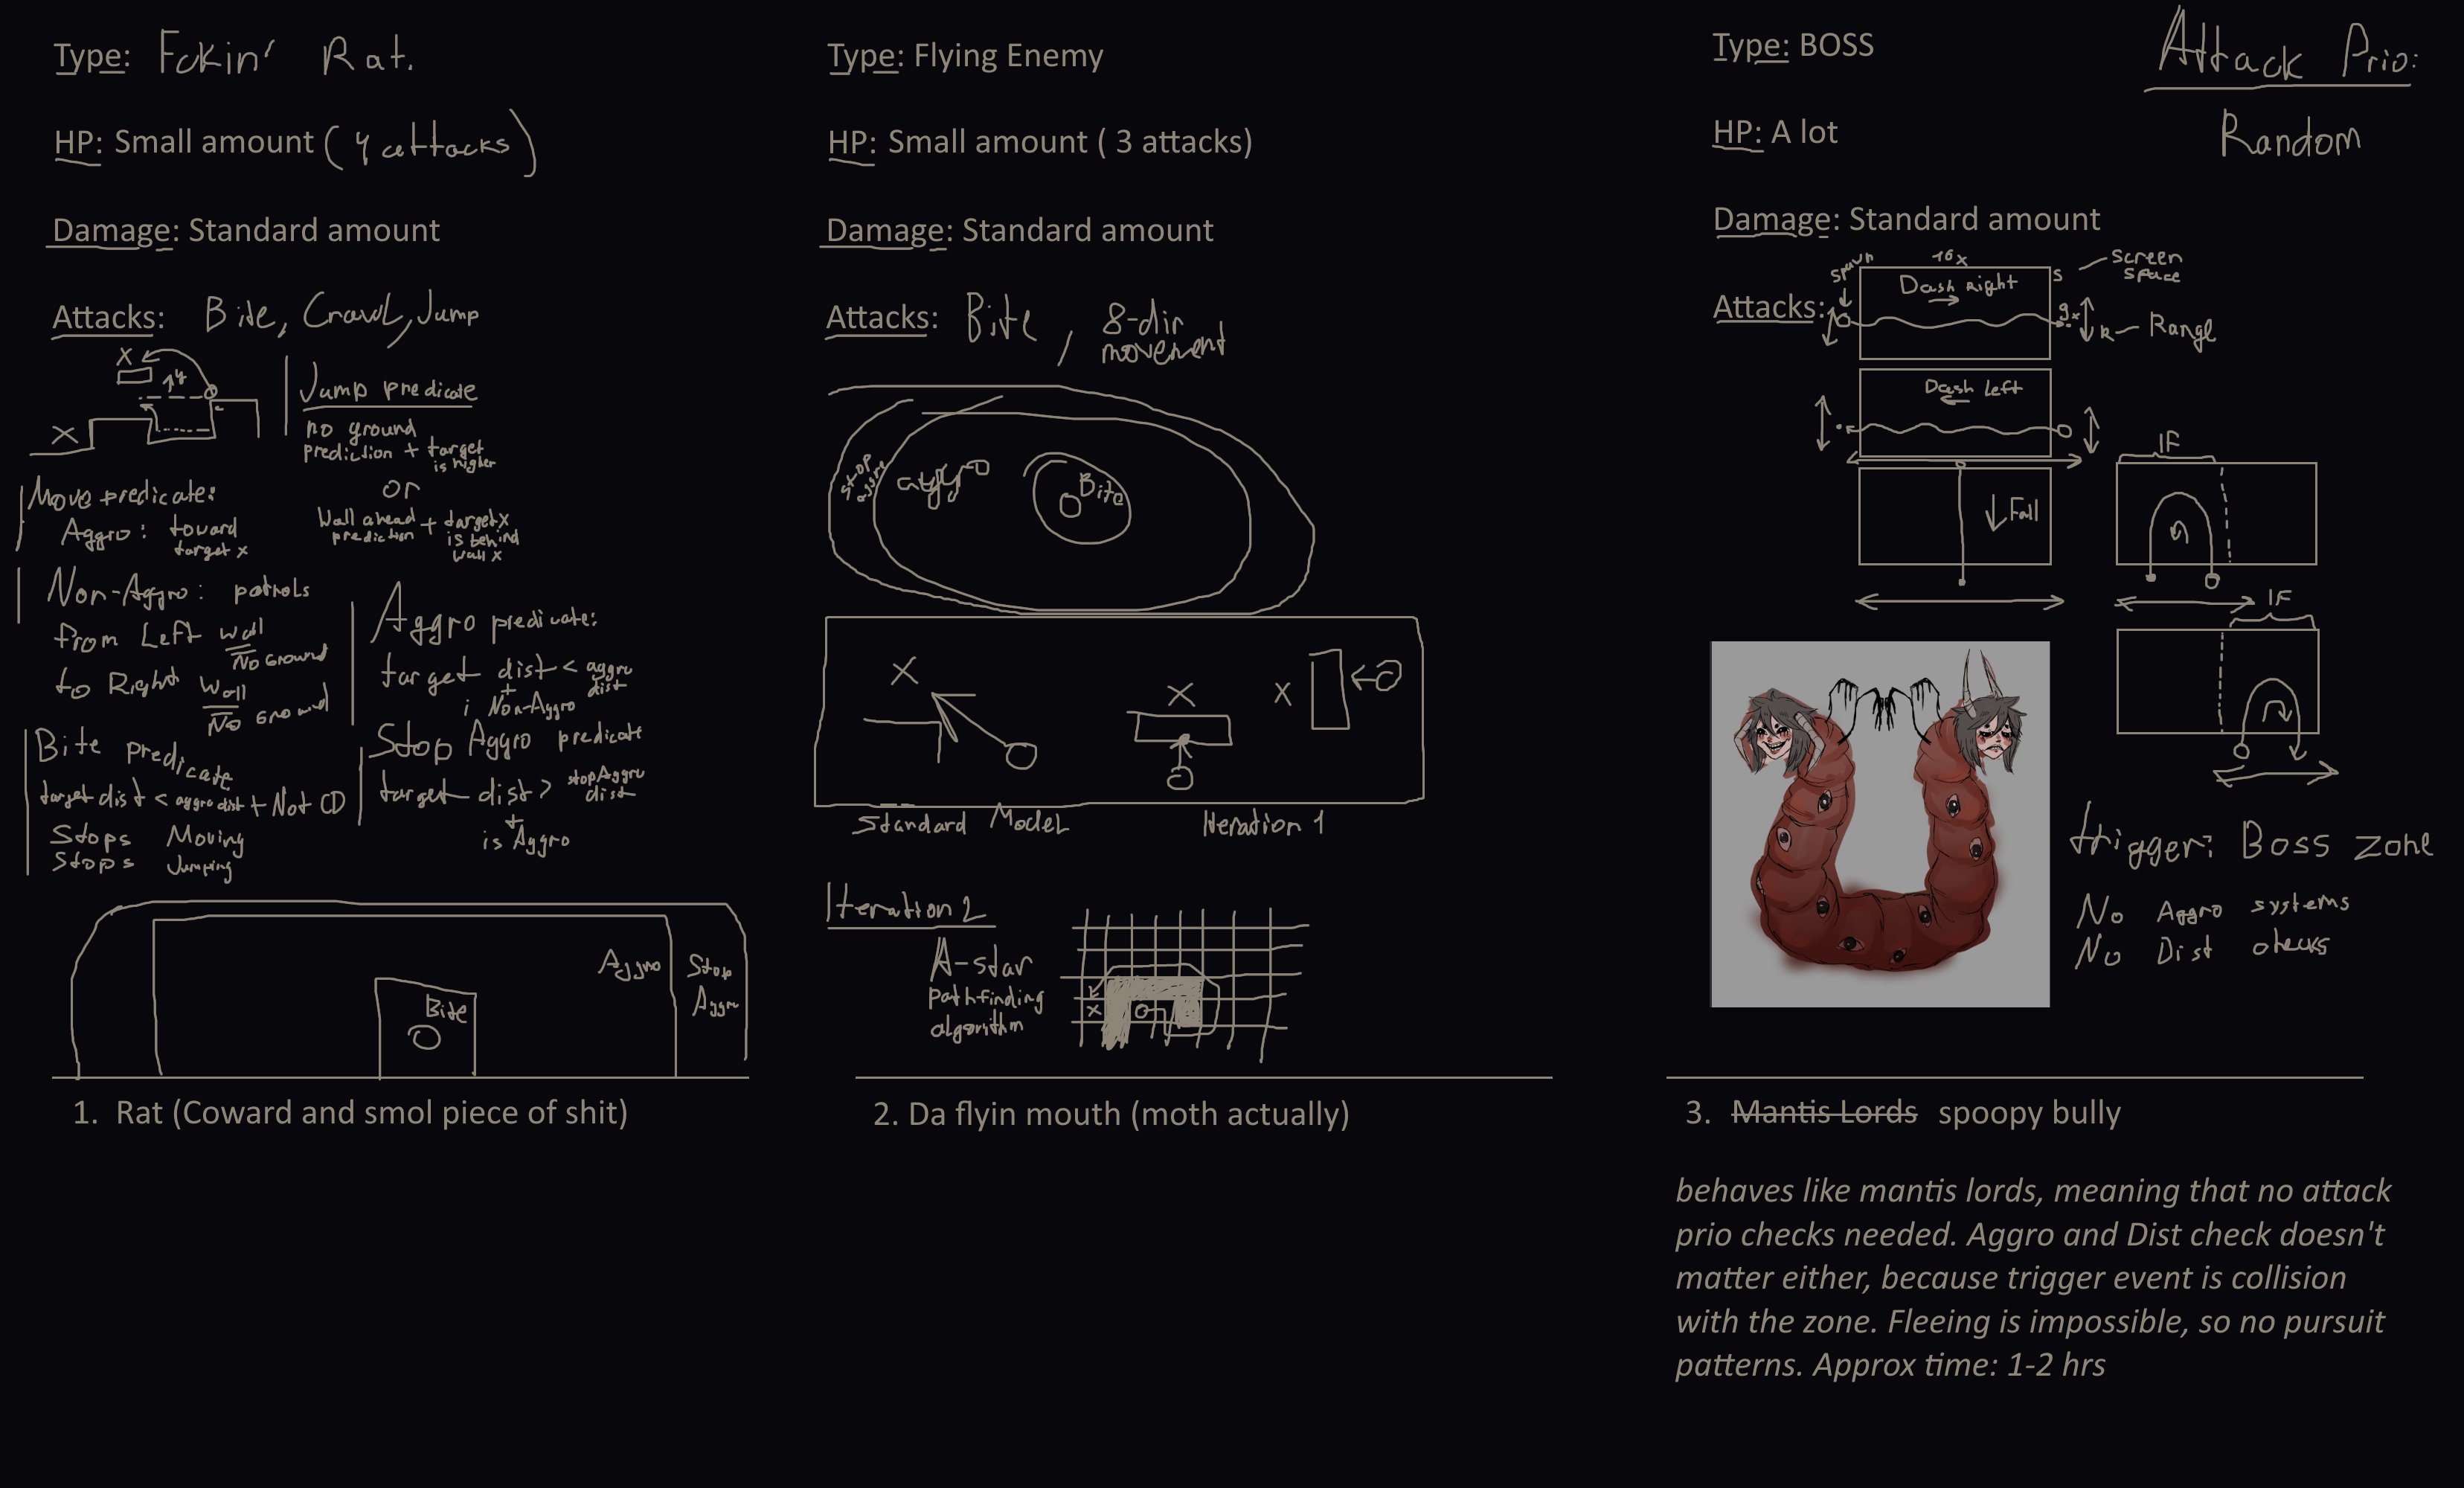 Type: Fckin' Rat.
HP: Small amount (4 attacks)
Damage: Standard amount
Attacks: Bite, Crawl, Jump
X
y
X
Jump predicate
no ground
prediction + target
is higher
or
Wall ahead + target x
prediction is behind
wall x
Move predicate:
Aggro: toward
target x
Non-Aggro: patrols
from Left wall
No Ground
to Right wall
No Ground
Aggro predicate:
target dist < aggro
dist
+
i Non-Aggro
Bite predicate
target dist < aggro dist + Not CD
Stops Moving
Stops Jumping
Stop Aggro predicate
target dist > stopAggro
dist
+
is Aggro
Aggro
Stop
Aggro
Bite
1. Rat (Coward and smol piece of shit)
Type: Flying Enemy
HP: Small amount ( 3 attacks)
Damage: Standard amount
Attacks: Bite, 8-dir
movement
Stop
aggro
aggro
Bite
X
X
X
Standard Model
Iteration 1
Iteration 2
A-star
pathfinding
algorithm
x
2. Da flyin mouth (moth actually)
Type: BOSS
Attack Prio:
Random
HP: A lot
Damage: Standard amount
Attacks:
spawn
16x
S
screen
space
Dash Right
9x
R - Range
Dash Left
Fall
IF
IF
trigger: Boss zone
No Aggro systems
No Dist checks
3. Mantis Lords spoopy bully
behaves like mantis lords, meaning that no attack
prio checks needed. Aggro and Dist check doesn't
matter either, because trigger event is collision
with the zone. Fleeing is impossible, so no pursuit
patterns. Approx time: 1-2 hrs